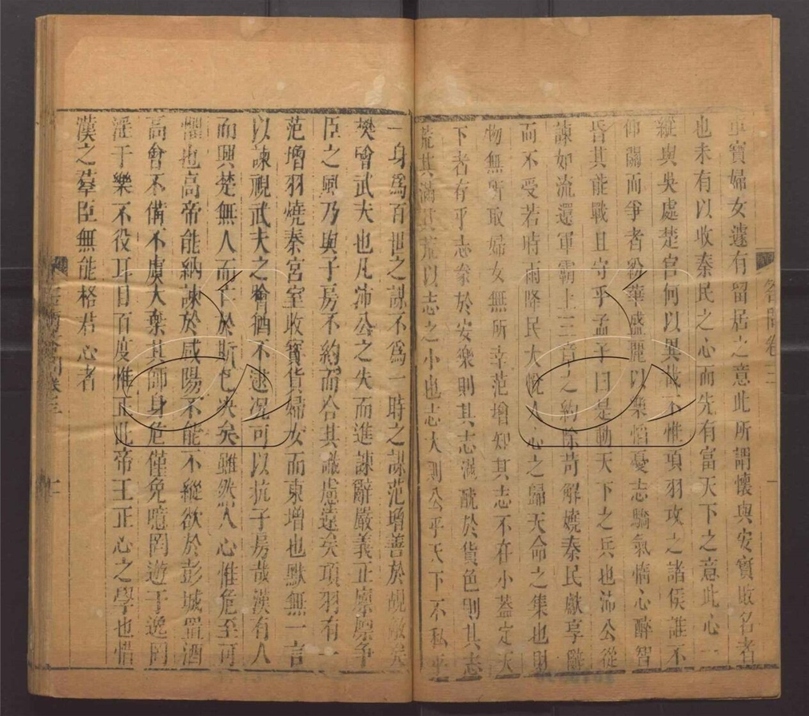 重寶婦女遂有留居之意此所謂懷與安實敗名者
也未有以收秦民之心而先有富天下之意此心一
縱與吳處楚宮何以異哉不惟項羽攻之諸侯誰不
仰關而爭者紛華盛麗以樂慆憂志驕氣惰心醉智
昏其能戰且守乎孟子曰是動天下之兵也沛公從
諫如流還軍霸上三章之約除苛解嬈秦民獻享辭
而不受若時雨降民大悅人心之歸天命之集也財
物無所取婦女無所幸范增知其志不在小蓋定天
下者存乎志豢於安樂則其志溺酖於貨色則其志
荒其溺其荒以志之小也志大則公乎天下不私乎
一身爲百世之謀不爲一時之謀范增善於覘敵矣
樊噲武夫也凡沛公之失而進諫辭嚴義正凜凜爭
臣之風乃與子房不約而合其識慮遠矣項羽有一
范增羽燒秦宮室收寶貨婦女而東增也默無一言
以諫視武夫之噲猶不逮況可以抗子房哉漢有人
而興楚無人而亡於斯已決矣雖然人心惟危至可
懼也高帝能納諫於咸陽不能不縱欲於彭城置酒
高會不備不虞大棄其師身危僅免噫罔遊于逸罔
淫于樂不役耳目百度惟正此帝王正心之學也惜
漢之羣臣無能格君心者
答問卷三